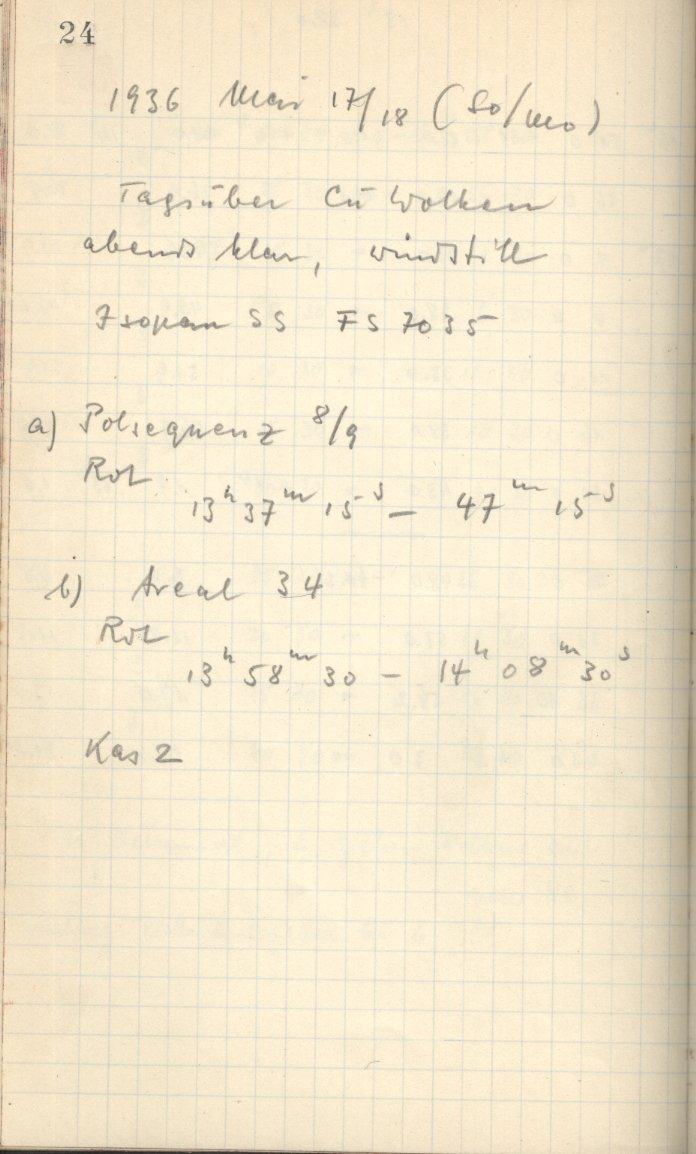 24
1936 Mai 17/18 (So/Mo)
Tagsüber Cu Wolken
abends klar, windstill
Isopan SS FS 7035
a) Polsequenz 8/9
Rot
13h 37m 15s – 47m 15s
b) Areal 34
Rot
13h 58m 30 – 14h 08m 30s
Kas 2